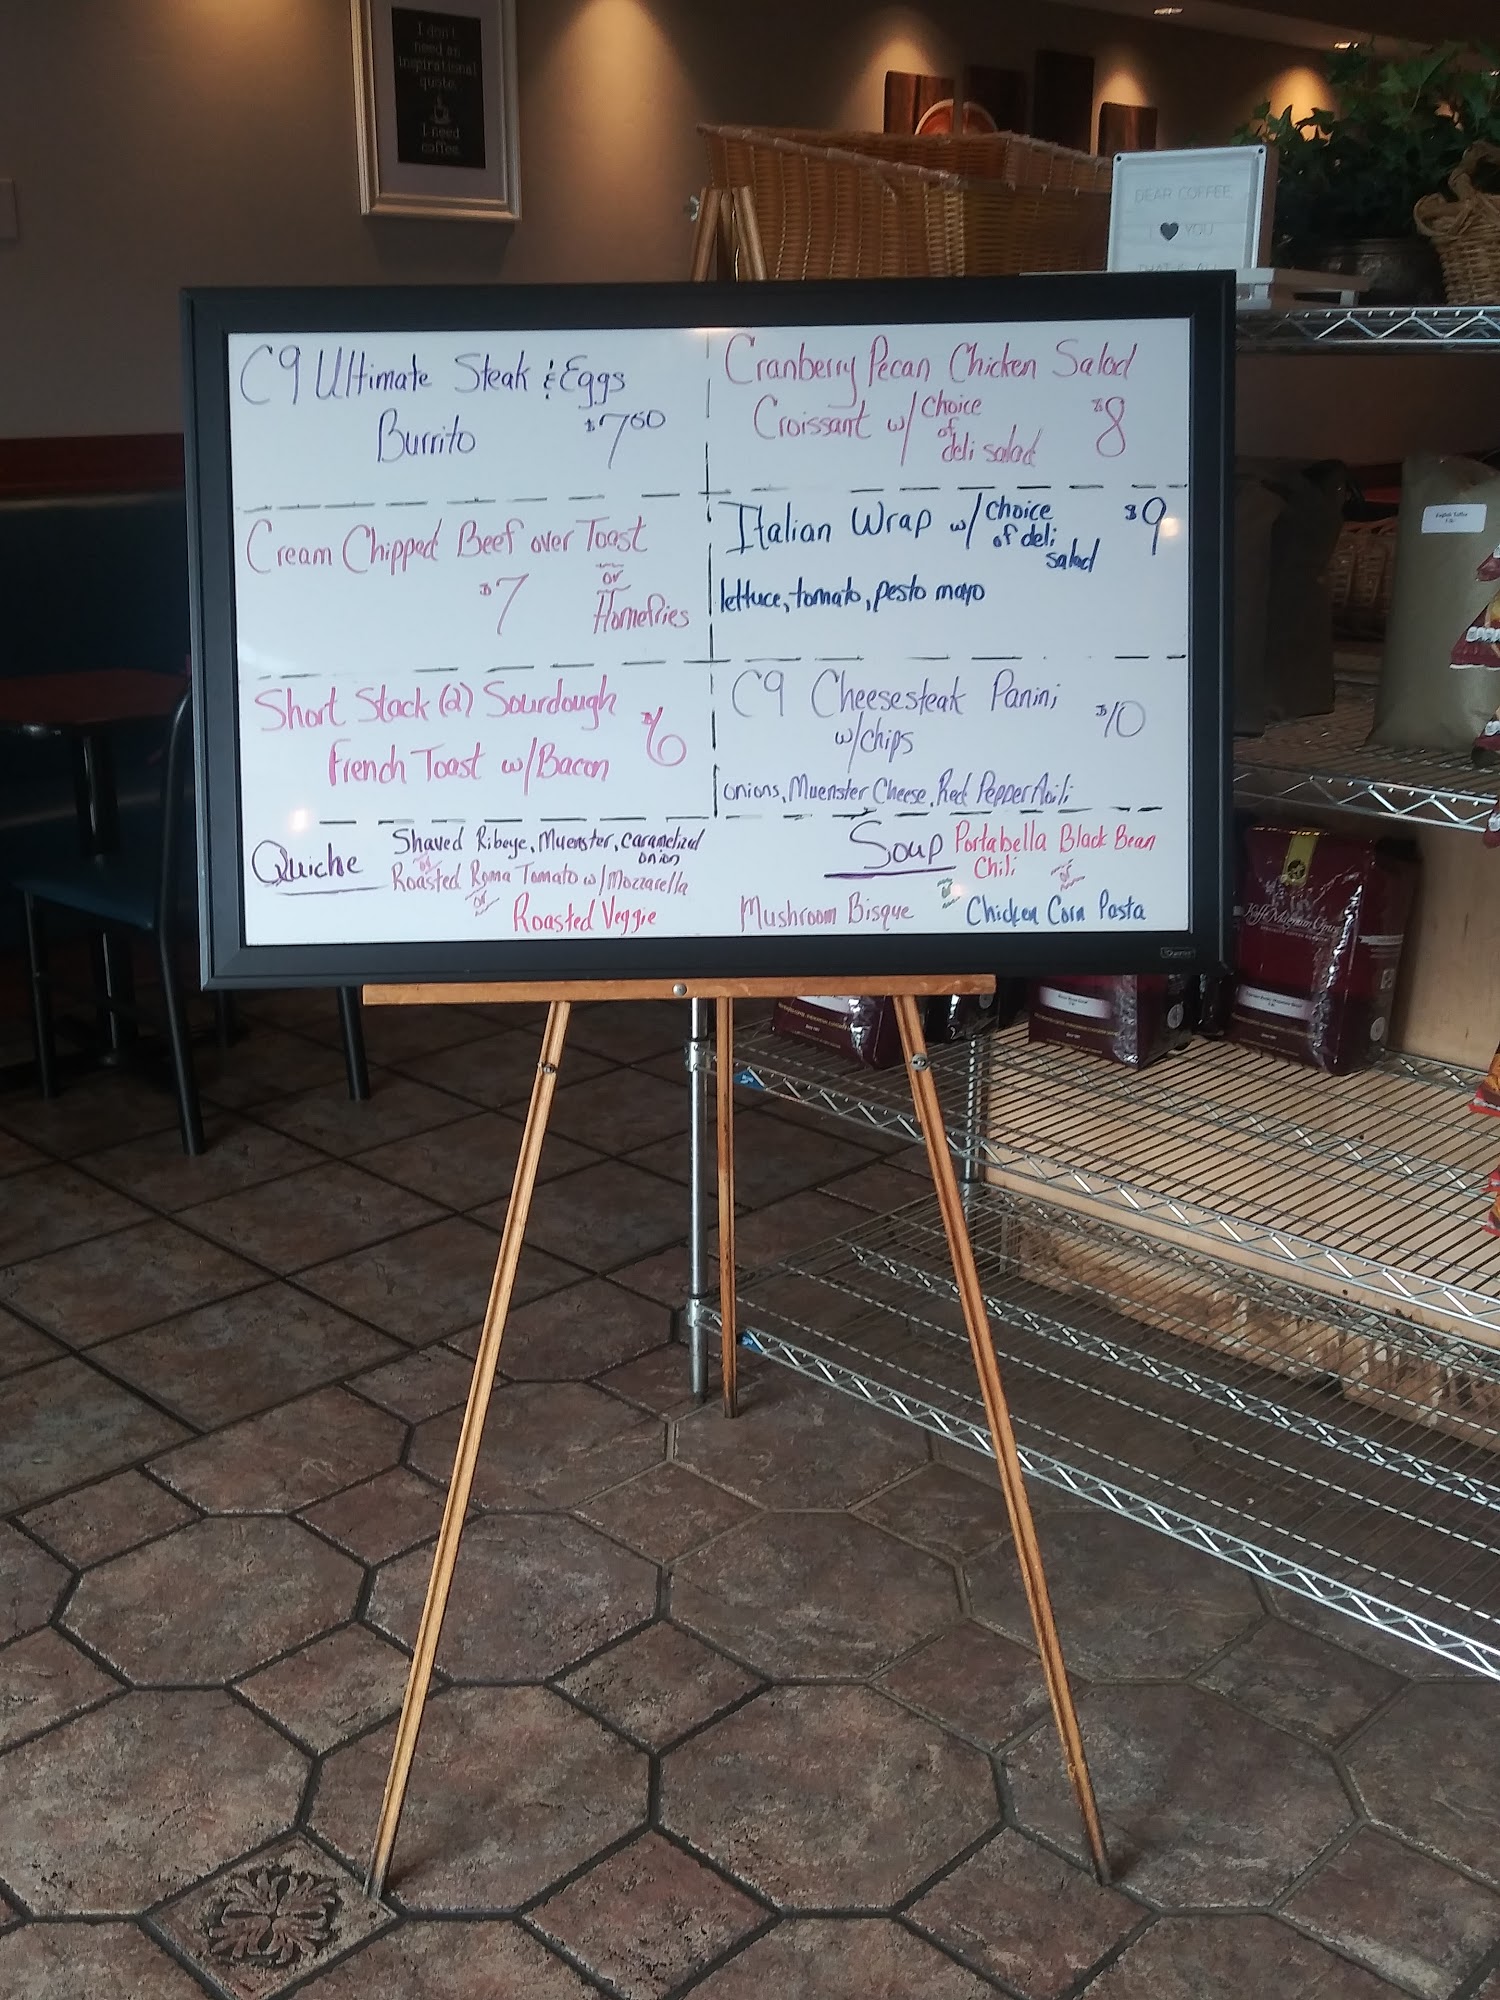 I don't
need an
inspirational
quote.
I need
coffee.
DEAR COFFEE,
I ♥ YOU
THAT IS ALL
C9 Ultimate Steak & Eggs
Burrito $7.50
Cream Chipped Beef over Toast
or
$7 Homefries
Short Stack (2) Sourdough
French Toast w/Bacon $6
Cranberry Pecan Chicken Salad
Croissant w/ choice
of
deli salad $8
Italian Wrap w/ choice
of deli
salad $9
lettuce, tomato, pesto mayo
C9 Cheesesteak Panini
w/chips $10
onions, Muenster Cheese, Red Pepper Aoili
Quiche
Shaved Ribeye, Muenster, caramelized
onion
or
Roasted Roma Tomato w/Mozzarella
or
Roasted Veggie
Soup
Portabella Black Bean
Chili
or
Mushroom Bisque or Chicken Corn Pasta